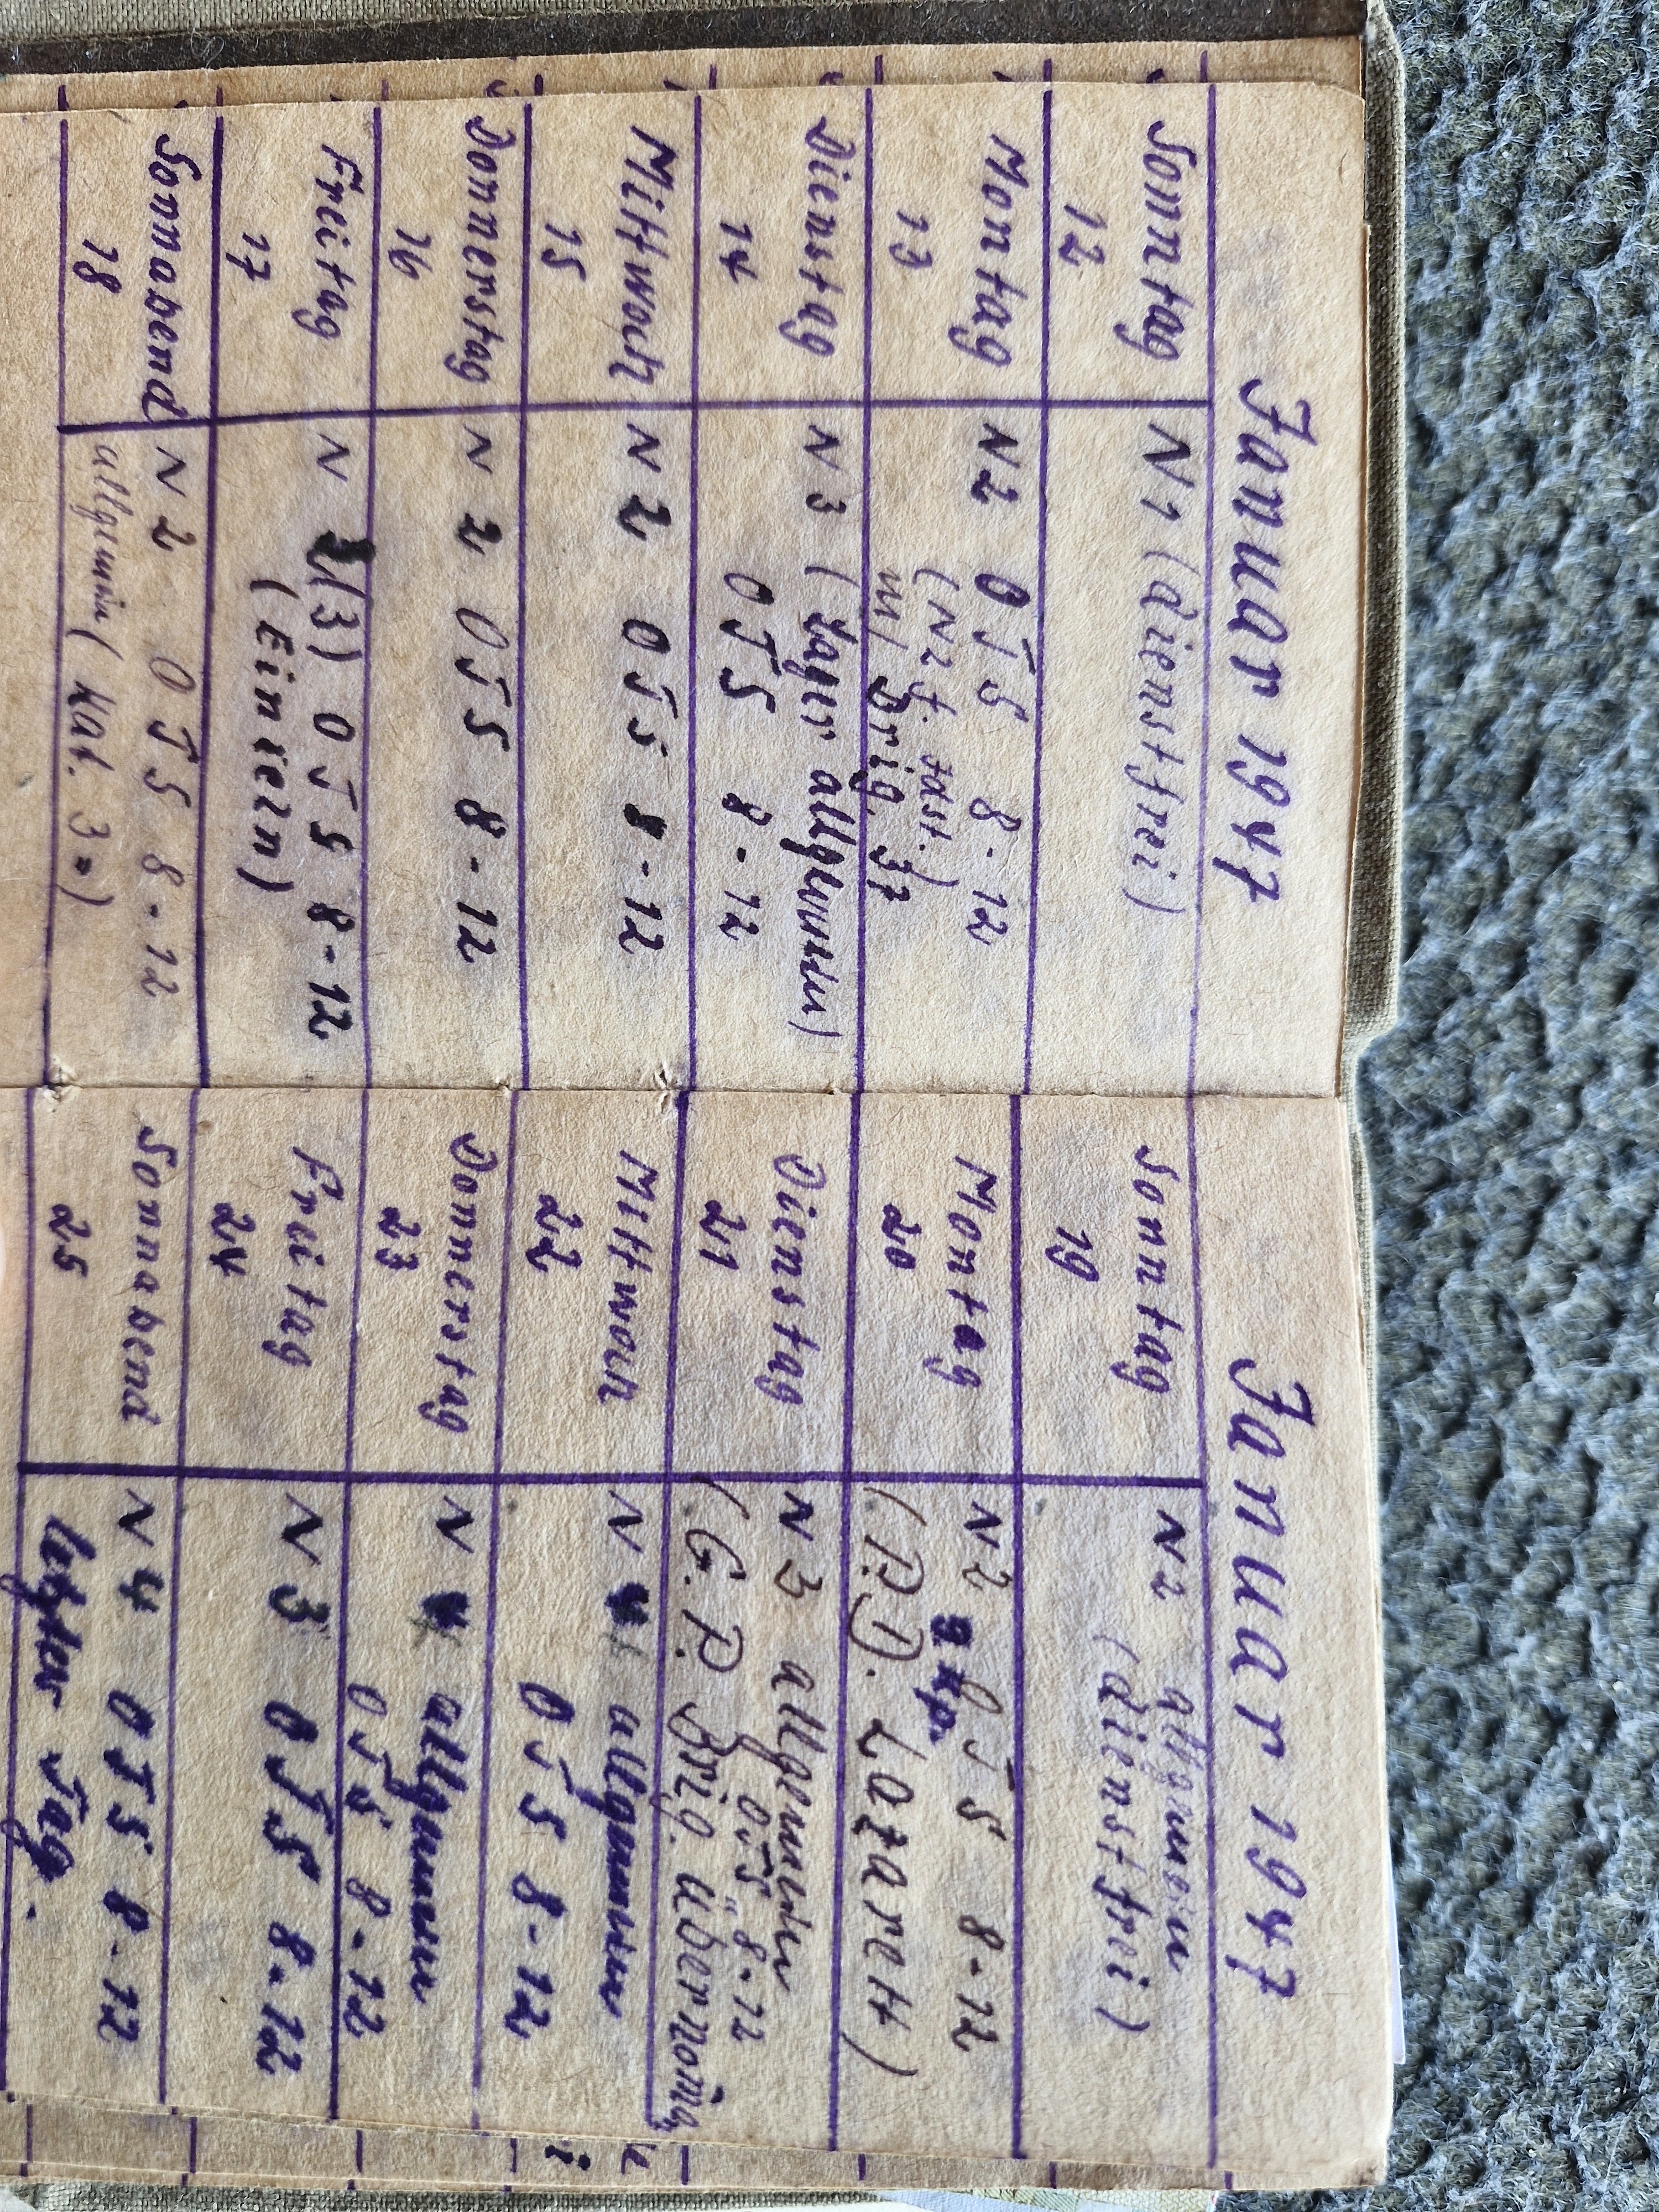 Januar 1947
Sonntag N 1 (dienstfrei)
12
Montag N 2 OJS 8-12
13 (N 2 f. tast.)
Dienstag N 3 (Lager allgemein)
14 OJS 8-12
Mittwoch N 2 OJS 8-12
15
Donnerstag N 2 OJS 8-12
16
Freitag N (3) OJS 8-12
17 (Einzeln)
Sonnabend N 2 OJS 8-12
18 allgemein (Kat. 3)
Januar 1947
Sonntag N 2 allgemein
19 (dienstfrei)
Montag N 2 OJS 8-12
20 (P.D. Lazarett)
Dienstag N 3 allgemein
21 OJS 8-12
(G.P. Brig. übernom̄
Mittwoch N 4 allgemein
22 OJS 8-12
Donnerstag N 4 allgemein
23 OJS 8-12
Freitag N 3 OJS 8-12
24
Sonnabend N 4 OJS 8-12
25 letzter Tag.